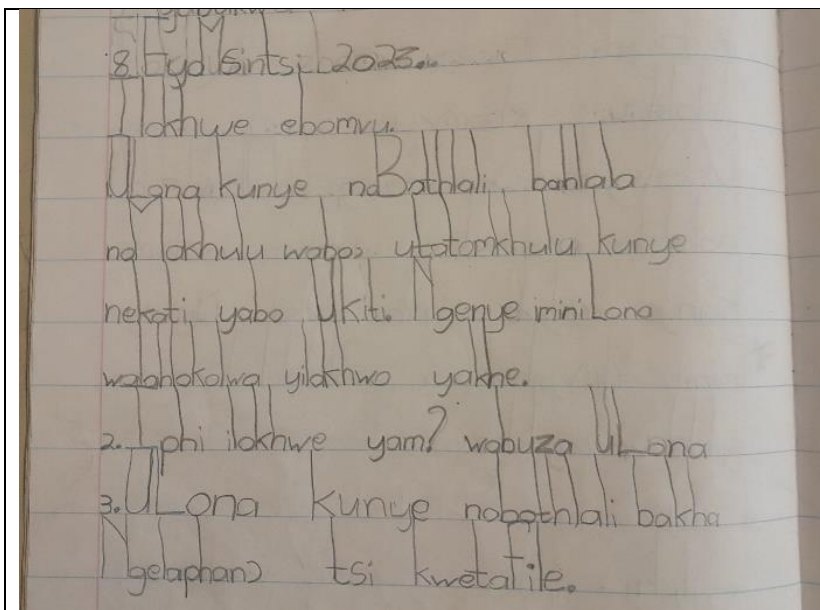 8 Eyo Sintsi 2023..
Ilokhwe ebomvu.
ULona kunye noBathlali, bahlala
no lokhulu wabo, utatomkhulu kunye
nekati yabo Ukiti. Ngenye mini Lona
walahlokolwa yilokhwo yakhe.
2. Iphi ilokhwe yam? wabuza ULona
3. ULona kunye nobathlali bakha
Ngelaphano tsi kwetafile.